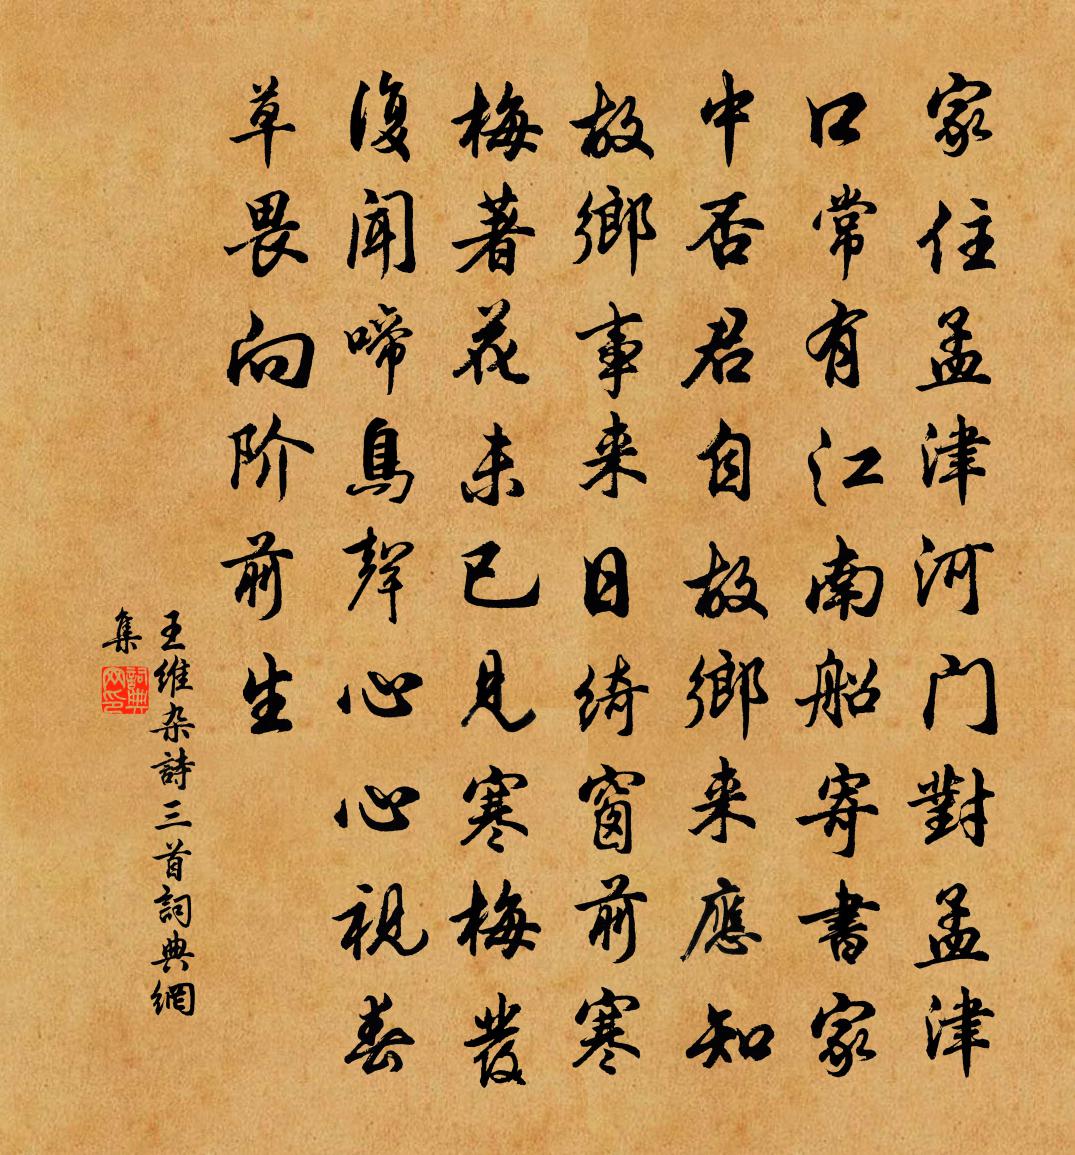 家住孟津河门對孟津
口常有江南船寄書家
中否君自故鄉来應知
故鄉事来日绮窗前寒
梅著花未已見寒梅發
復聞啼鳥聲心心視春
草畏向阶前生
王維杂詩三首詞典網
集
詞典网印